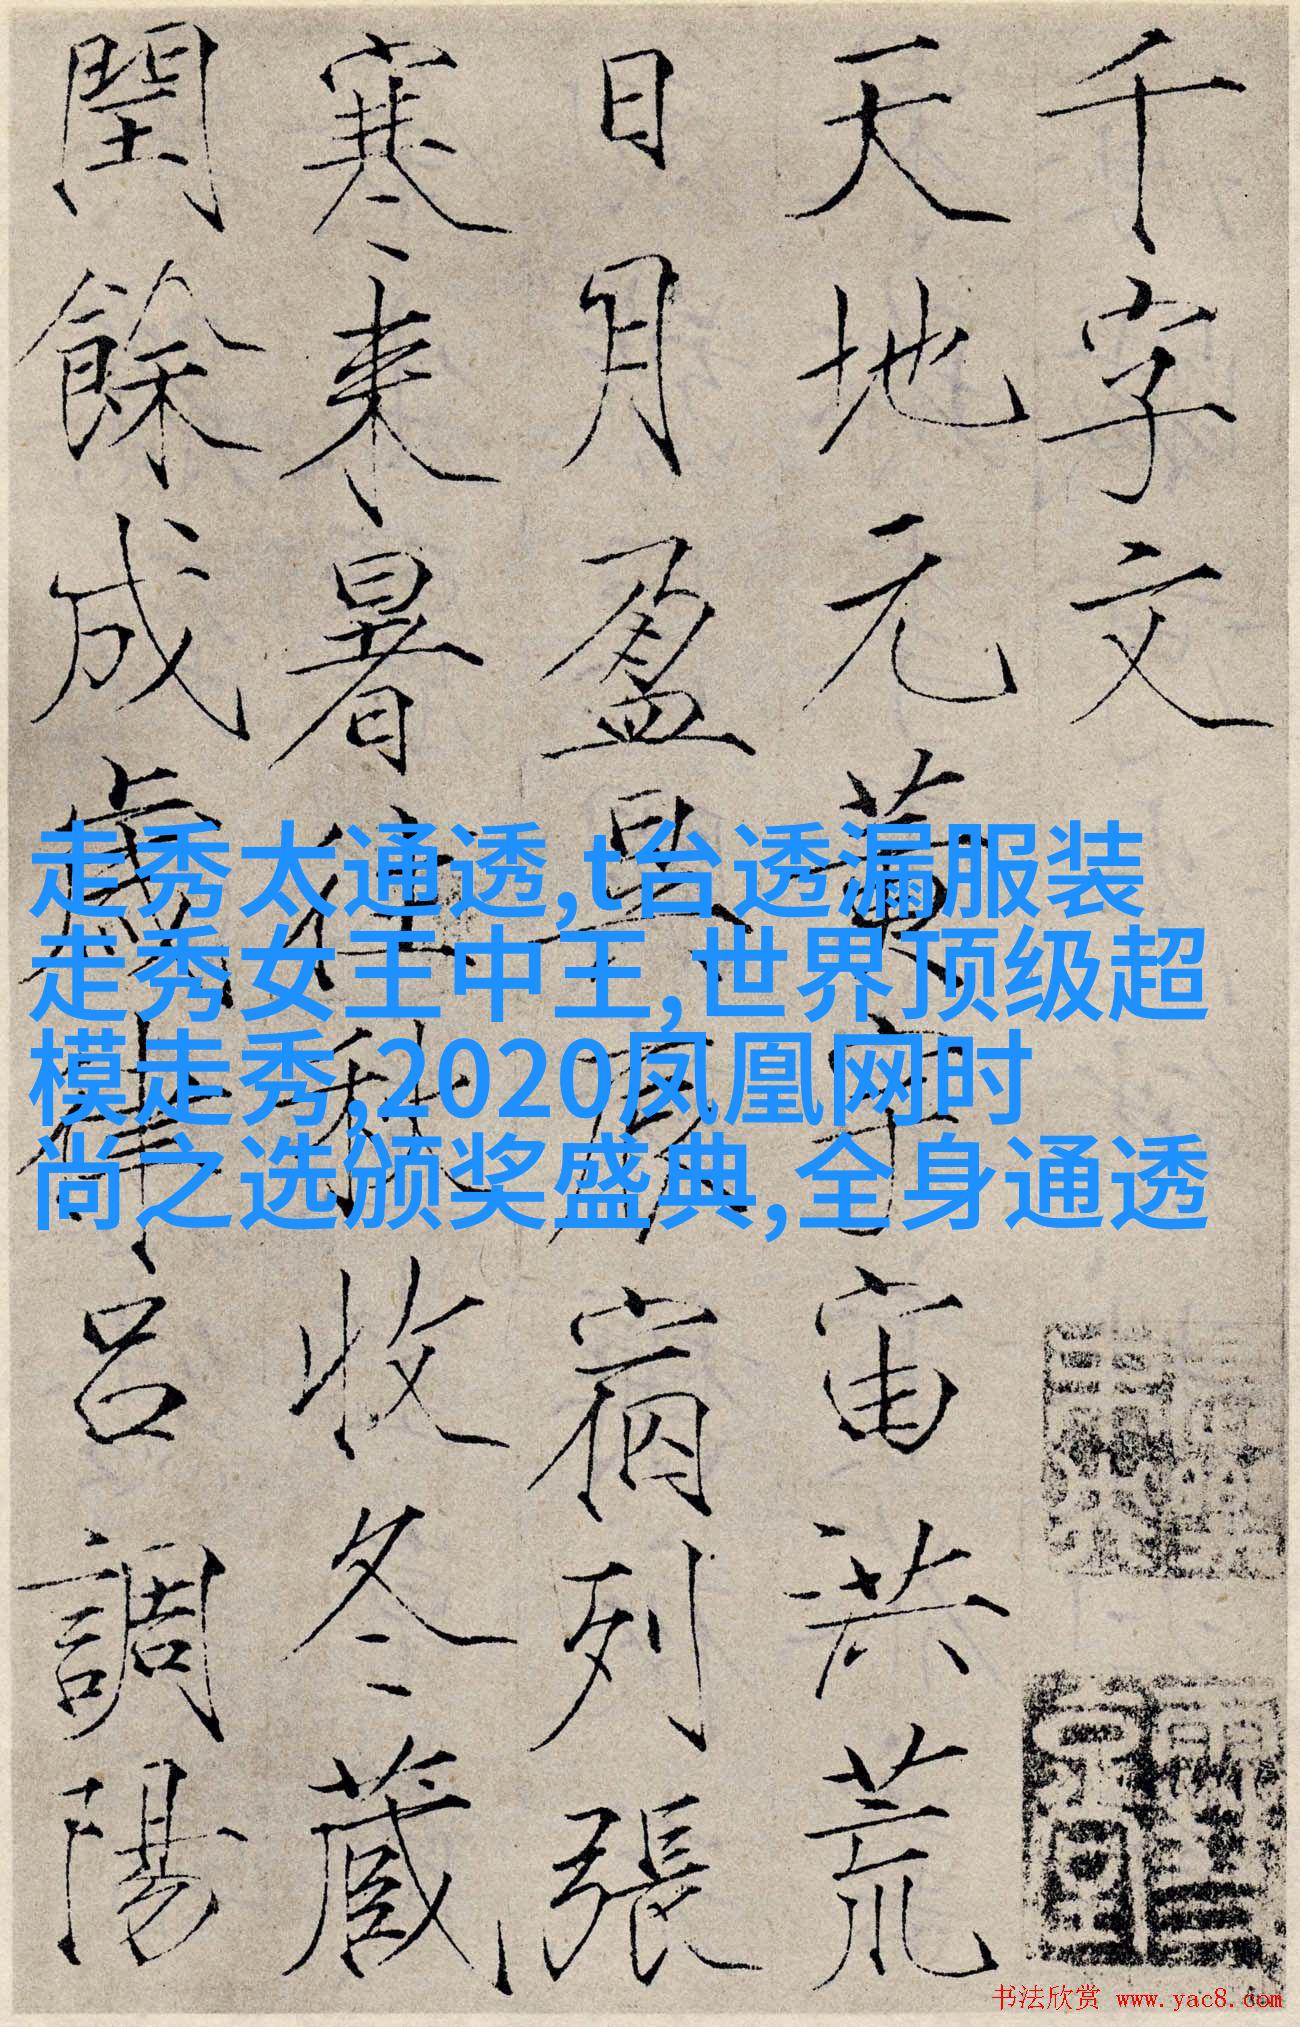 千字文
天地元黄宇宙洪荒
日月盈昃辰宿列張
寒来暑往秋收冬藏
閏餘成歲律吕調陽
走秀太通透,t台透漏服装
走秀女王中王,世界顶级超
模走秀,2020凤凰网时
尚之选颁奖盛典,全身通透
书法欣赏 www.yac8.com